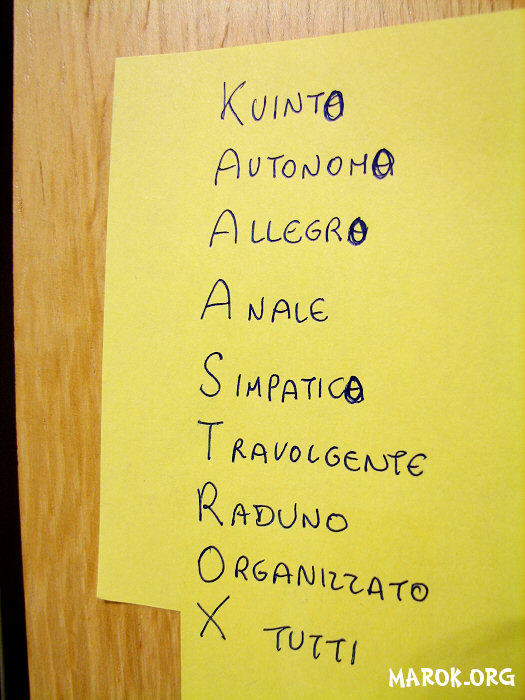 KUINTO
AUTONOMO
ALLEGRO
ANALE
SIMPATICO
TRAVOLGENTE
RADUNO
ORGANIZZATO
X TUTTI
MAROK.ORG